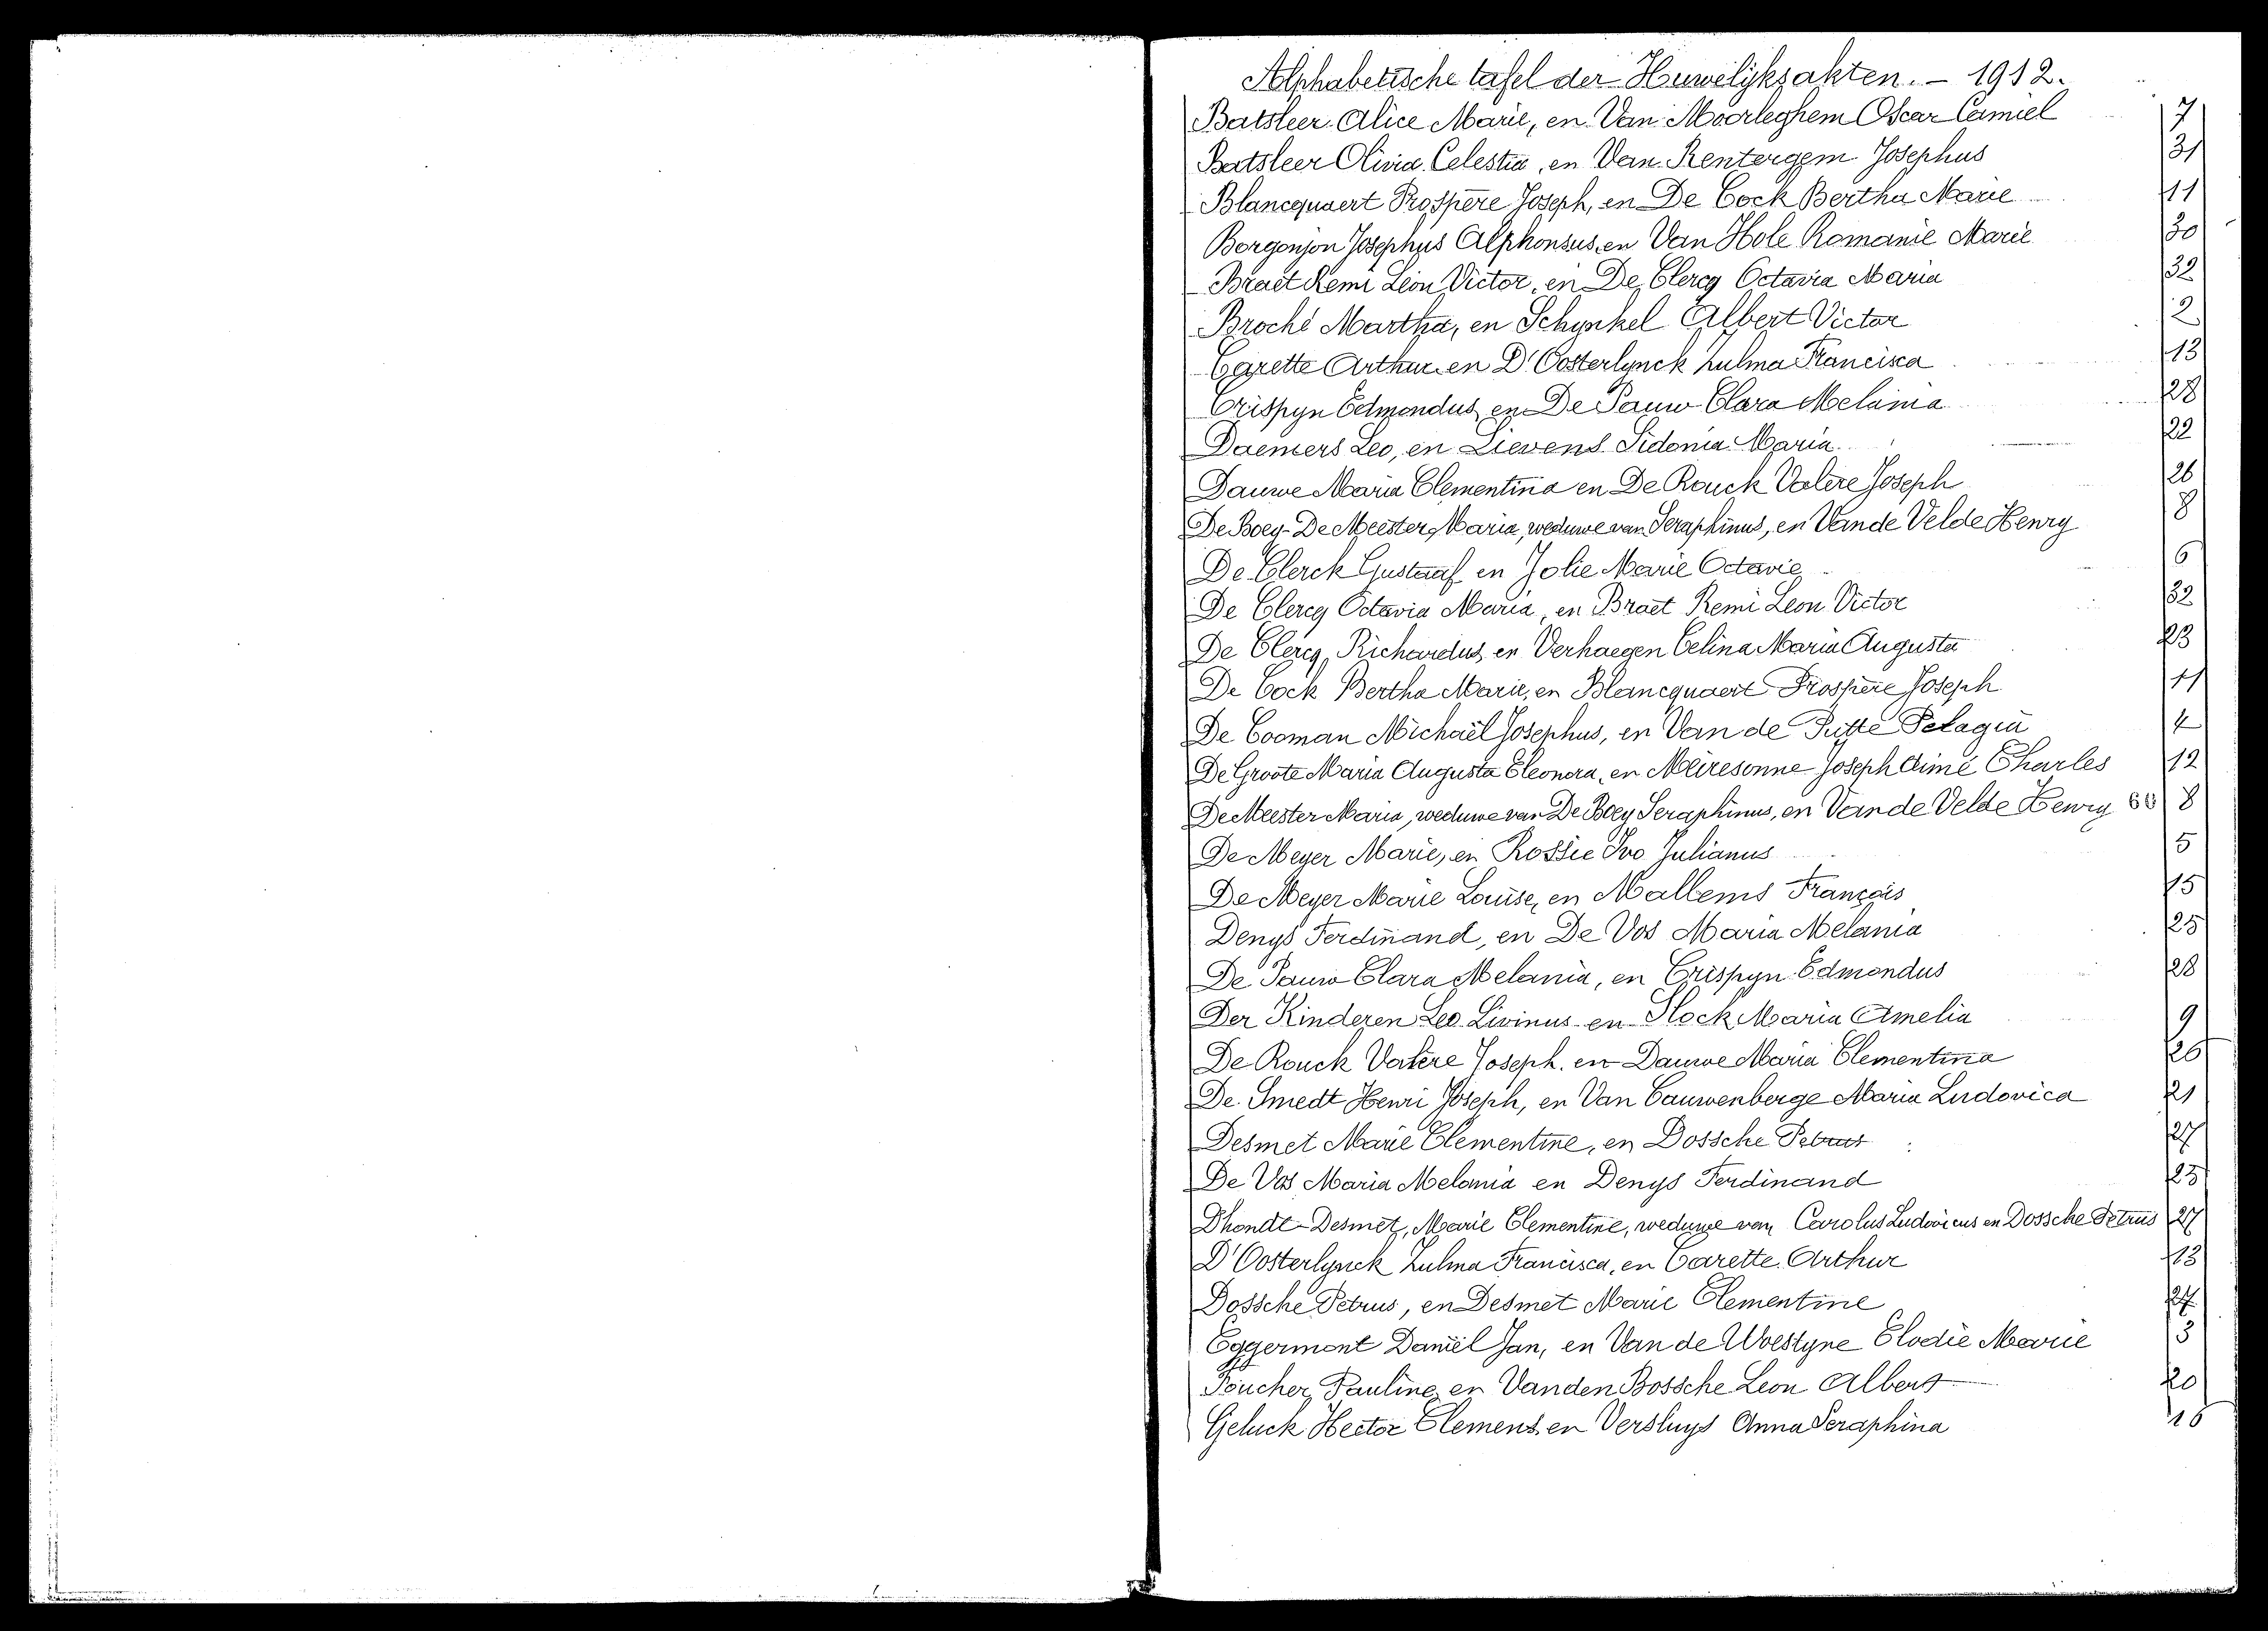 Alphabetische tafel der Huwelijksakten. – 1912.
Batsleer Alice Marie, en Van Moorleghem Oscar Camiel 7
Batsleer Olivia Celestia, en Van Rentergem Josephus 31
Blancquaert Prospere Joseph, en De Cock Bertha Marie 11
Borgonjon Josephus Alphonsus, en Van Hole Romanie Marie 30
Braet Remi Léon Victor, en De Clercq Octavia Maria 32
Broché Martha, en Schynkel Albert Victor 2
Carette Arthur en D'Oosterlynck Zulma Francisca 13
Crispyn Edmondus en De Pauw Clara Melania 28
Daemers Leo, en Lievens Sidonia Maria 22
Dauwe Maria Clementina en De Rouck Valère Joseph 26
De Boey-De Meester, Maria, weduwe van Seraphinus, en Vande Velde Henry 8
De Clerck Gustaaf en Jolie Marie Octavie 6
De Clercq Octavia Maria, en Braet Remi Leon Victor 32
De Clercq, Richardus, en Verhaegen Celina Maria Augusta 23
De Cock Bertha Marie, en Blancquaert Prospere Joseph 11
De Cooman Michaël Josephus, en Van de Putte Pelagia 4
De Groote Maria Augusta Eleonora, en Meiresonne Joseph Aimé Charles 12
De Meester Maria, weduwe van De Boey Seraphinus, en Vande Velde Henry 8
De Meyer Marie, en Rossie Ivo Julianus 5
De Meyer Marie Louise, en Mallems François 15
Denys Ferdinand, en De Vos Maria Melania 25
De Pauw Clara Melania, en Crispyn Edmondus 28
Der Kinderen Leo Livinus en Slock Maria Amelia 9
De Rouck Valère Joseph. en Dauwe Maria Clementina 26
De Smedt Henri Joseph, en Van Cauwenberge Maria Ludovica 21
Desmet Marie Clementine, en Dossche Petrus 27
De Vos Maria Melania en Denys Ferdinand 25
Dhondt-Desmet, Marie Clementine, weduwe van Carolus Ludovicus en Dossche Petrus 27
D'Oosterlynck Zulma Francisca, en Carette Arthur 13
Dossche Petrus, en Desmet Marie Clementine 27
Eggermont Daniël Jan, en Van de Woestyne Elodie Marie 3
Foucher Pauline, en Vanden Bossche Leon Albert 20
Geluck Hector Clemens, en Versluys Anna Seraphina 16